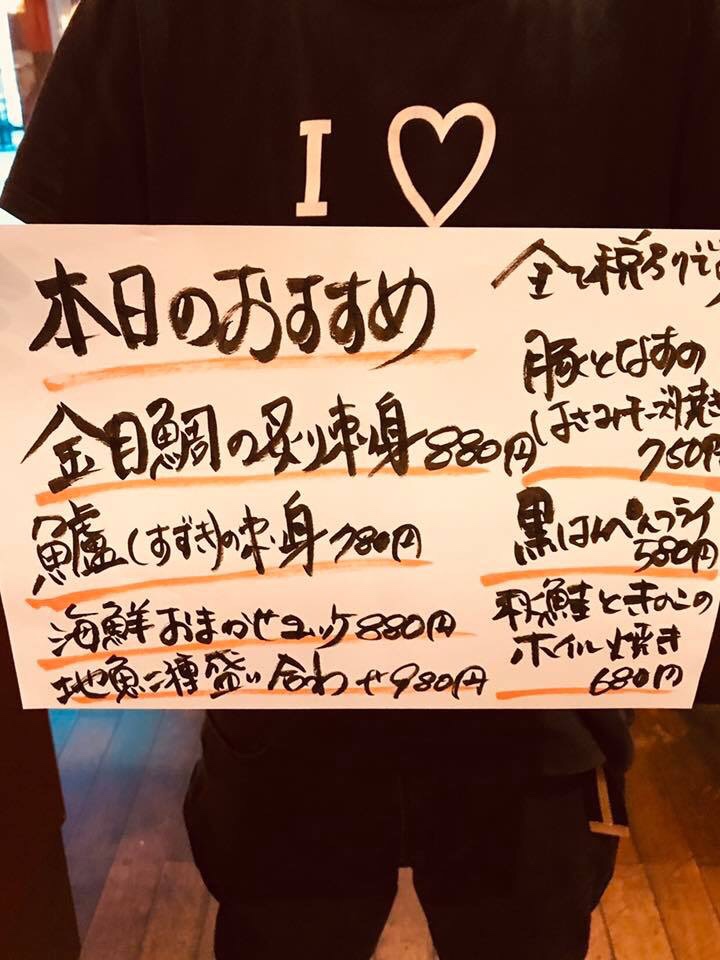 I ♡
本日のおすすめ
金目鯛の炙り刺身 880円
鱸(すずき)の刺身 780円
海鮮おまかせユッケ 880円
地魚二種盛り合わせ 980円
全て税
豚となすの
はさみチーズ焼き
750円
黒はんぺんフライ
580円
秋鮭ときのこの
ホイル焼き
680円